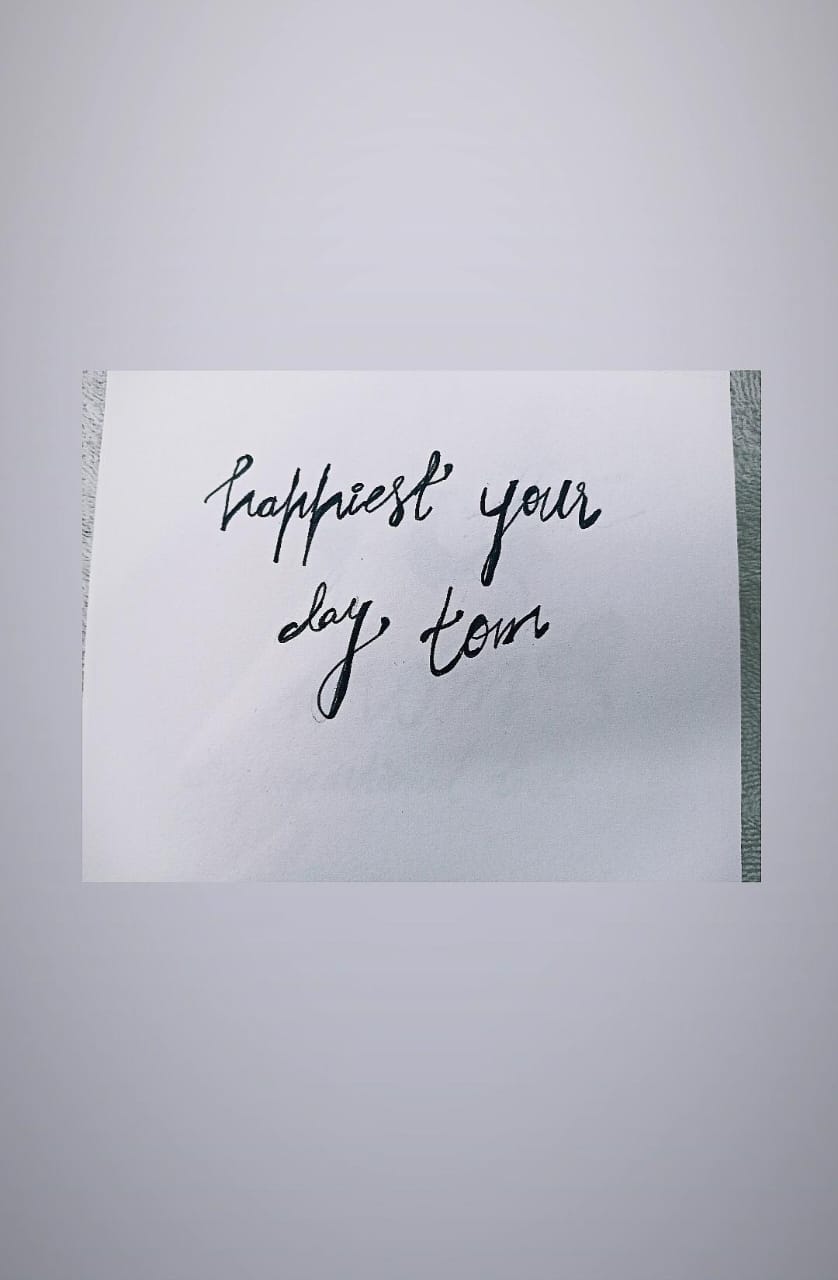 happiest your
day tom